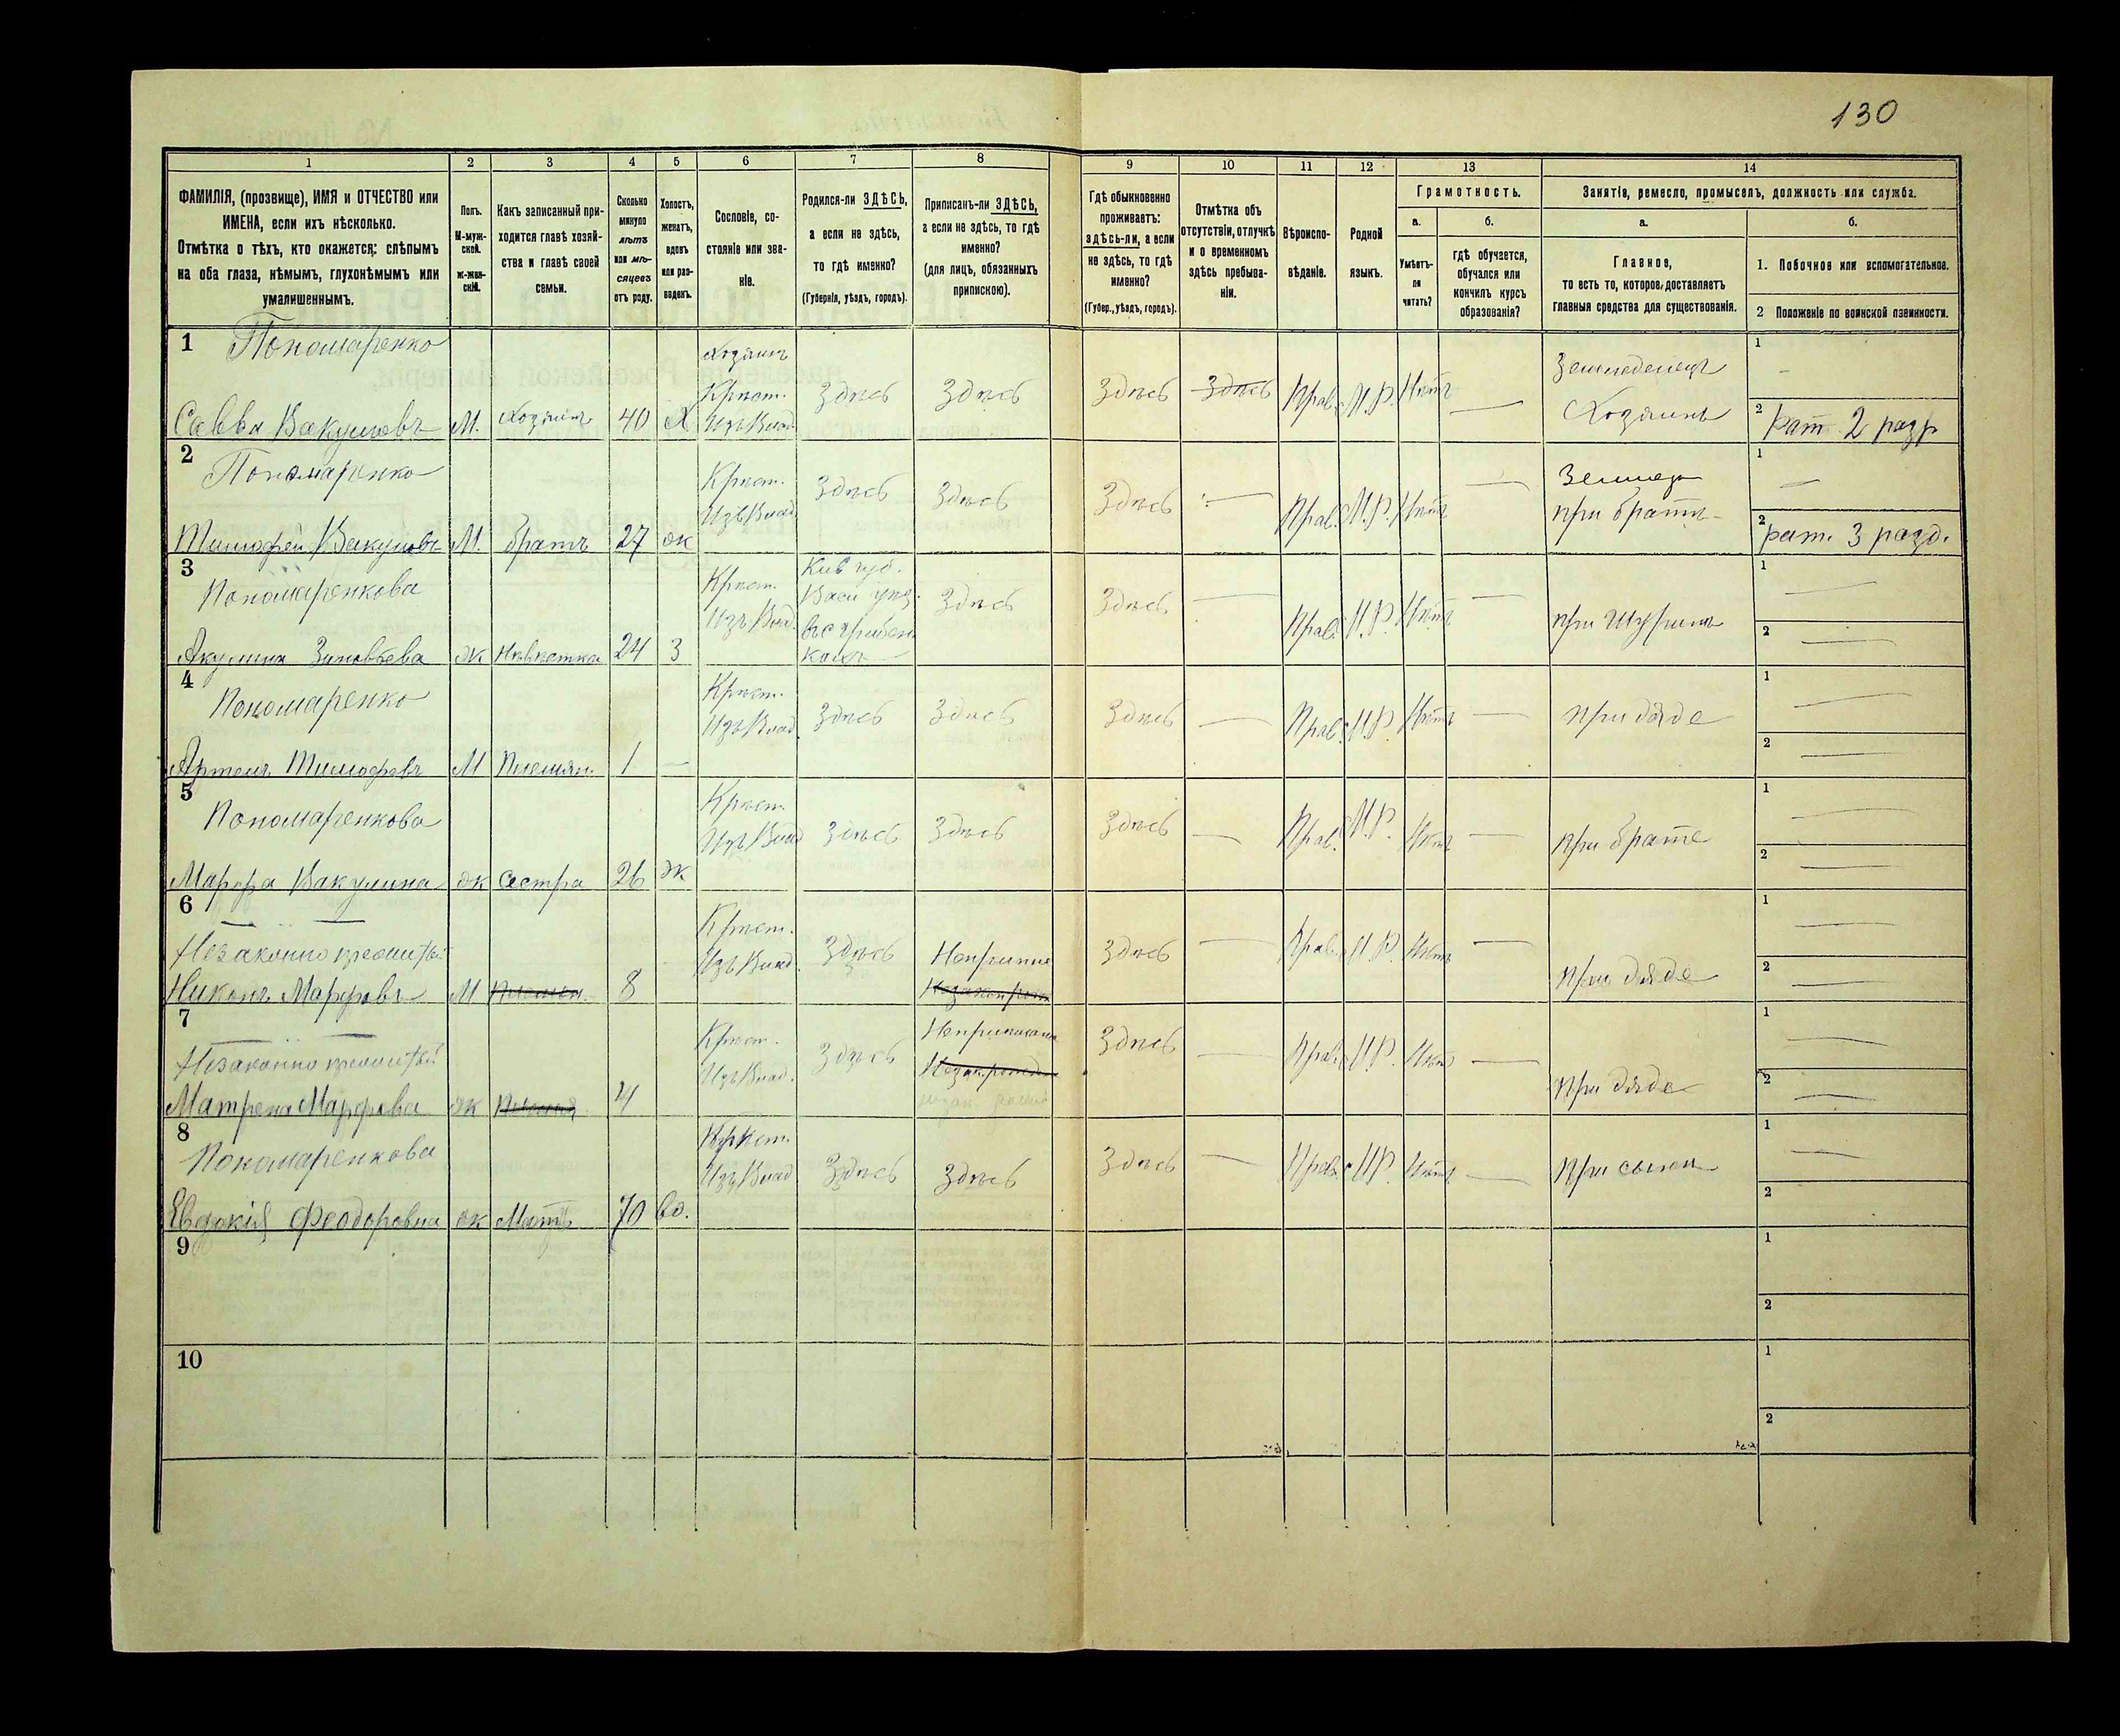 130
1
2
3
4
5
6
7
8
9
10
11
12
13
14
ФАМИЛІЯ, (прозвище), ИМЯ и ОТЧЕСТВО или
ИМЕНА, если ихъ нѣсколько.
Отмѣтка о тѣхъ, кто окажется: слѣпымъ
на оба глаза, нѣмымъ, глухонѣмымъ или
умалишеннымъ.
Полъ.
М-муж-
ской.
ж-жен-
скій.
Какъ записанный при-
ходится главѣ хозяй-
ства и главѣ своей
семьи.
Сколько
минуло
лѣтъ
или мѣ-
сяцевъ
отъ роду.
Холостъ,
женатъ,
вдовъ
или раз-
веденъ.
Сословіе, со-
стояніе или зва-
ніе.
Родился-ли ЗДѢСЬ,
а если не здѣсь,
то гдѣ именно?
(Губернія, уѣздъ, городъ).
Приписанъ-ли ЗДѢСЬ,
а если не здѣсь, то гдѣ
именно?
(для лицъ, обязанныхъ
припискою).
Гдѣ обыкновенно
проживаетъ:
здѣсь-ли, а если
не здѣсь, то гдѣ
именно?
(Губер., уѣздъ, городъ).
Отмѣтка объ
отсутствіи, отлучкѣ
и о временномъ
здѣсь пребыва-
ніи.
Вѣроиспо-
вѣданіе.
Родной
языкъ.
Грамотность.
а.
Умѣетъ-
ли
читать?
б.
гдѣ обучается,
обучался или
кончилъ курсъ
образованія?
Занятія, ремесло, промыселъ, должность или служба.
а.
Главное,
то есть то, которое доставляетъ
главныя средства для существованія.
б.
1. Побочное или вспомогательное.
2 Положеніе по воинской повинности.
1 Пономаренко
Савва Вакуловъ М. Хозяинъ 40 Х
Хозяинъ
Крѣст.
Изъ Влад.
Здѣсь Здѣсь Здѣсь Здѣсь Прав. М.Р. Нѣтъ —
Земледелецъ
Хозяинъ
1 -
2 рат. 2 разр
2 Пономаренко
Тимофей Вакуловъ М. братъ 27 ж
Крѣст.
Изъ Влад
Здѣсь Здѣсь Здѣсь — Прав. М.Р. Нѣтъ —
при братѣ
1 —
2 рат. 3 разр.
3 Пономаренкова
Акулина Зиновьева ж Нѣвѣстка 24 З
Крѣст.
Изъ Влад.
Кив губ.
Васи уѣз.
Здѣсь Здѣсь — Прав. М.Р. Нѣтъ —
при Шуринѣ
1 —
2 —
4 Пономаренко
Артемъ Тимофевъ М Племян. 1 —
Крѣст.
Изъ Влад.
Здѣсь Здѣсь Здѣсь — Прав. М.Р. Нѣтъ —
при дяде
1 —
2 —
5 Пономаренкова
Марфа Вакулина ж сестра 26 ж
Крѣст.
Изъ Влад
Здѣсь Здѣсь Здѣсь — Прав. М.Р. Нѣтъ —
при брате
1 —
2 —
6
Незаконно
Никонъ Марфовъ М 8
Крѣст.
Изъ Влад.
Здѣсь Здѣсь — Прав. М.Р. Нѣтъ —
при дяде
1 —
2 —
7
Незаконно
Матрена Марфова ж 4
Крѣст.
Изъ Влад.
Здѣсь Здѣсь — Прав. М.Р. Нѣтъ —
при дяде
1 —
2 —
8 Пономаренкова
Евдокія Феодоровна ж Мать 70 вд.
Крѣст.
Изъ Влад
Здѣсь Здѣсь Здѣсь — Прав. М.Р. Нѣтъ —
При сынѣ
1 —
2
9
1
2
10
1
2